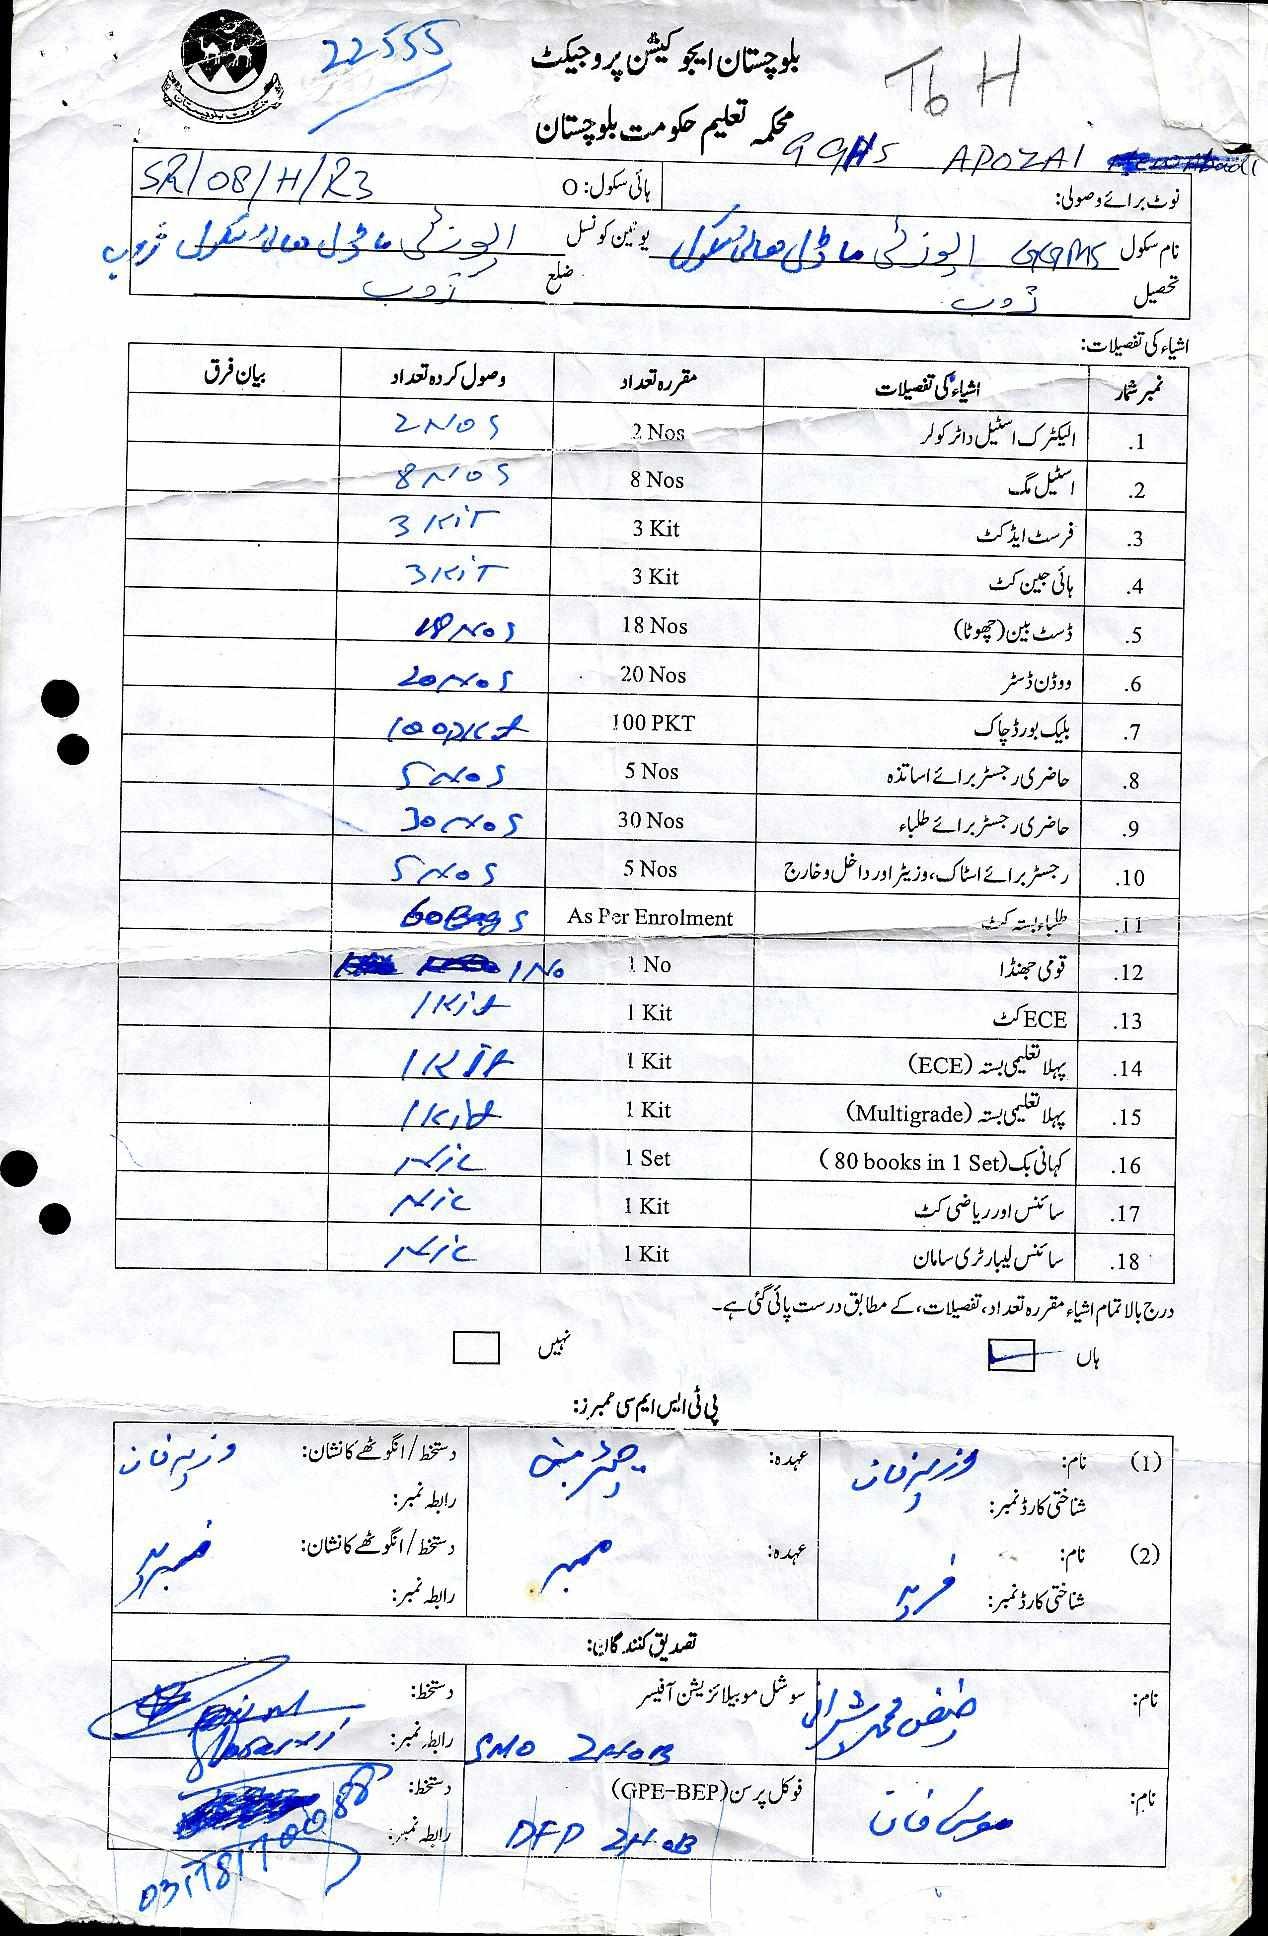 22555
بلوچستان ایجوکیشن پروجیکٹ
To H
محکمہ تعلیم حکومت بلوچستان
GGHS APOZAI
نوٹ برائے وصولی: ہائی سکول: O SR/08/H/R3
نام سکول GGMS اپوزئی ماڈل ھائی سکول یونین کونسل اپوزئی ماڈل ھائی سکول ژوب
تحصیل ژوب ضلع ژوب
اشیاء کی تفصیلات:
نمبر شمار اشیاء کی تفصیلات مقررہ تعداد وصول کردہ تعداد بیان فرق
1. الیکٹرک اسٹیل واٹر کولر 2 Nos 2 NOS
2. اسٹیل مگ 8 Nos 8 NOS
3. فرسٹ ایڈ کٹ 3 Kit 3 KiT
4. ہائی جین کٹ 3 Kit 3 KiT
5. ڈسٹ بین (چھوٹا) 18 Nos 18 Nos
6. ووڈن ڈسٹر 20 Nos 20 Nos
7. بلیک بورڈ چاک 100 PKT 100 pkt
8. حاضری رجسٹر برائے اساتذہ 5 Nos 5 Nos
9. حاضری رجسٹر برائے طلباء 30 Nos 30 Nos
10. رجسٹر برائے اسٹاک، وزیٹر اور داخل و خارج 5 Nos 5 Nos
11. طلباء بستہ کٹ As Per Enrolment 60 Bags
12. قومی جھنڈا 1 No 1 No
13. ECE کٹ 1 Kit 1 Kit
14. پہلا تعلیمی بستہ (ECE) 1 Kit 1 Kit
15. پہلا تعلیمی بستہ (Multigrade) 1 Kit 1 Kit
16. کہانی بک (80 books in 1 Set) 1 Set Nil
17. سائنس اور ریاضی کٹ 1 Kit Nil
18. سائنس لیبارٹری سامان 1 Kit Nil
درج بالا تمام اشیاء مقررہ تعداد، تفصیلات، کے مطابق درست پائی گئی ہے۔
ہاں نہیں
پی ٹی ایس ایم سی ممبرز:
(1) نام: وزیر خان عہدہ: چیئرمین دستخط/انگوٹھے کا نشان: وزیر خان
شناختی کارڈ نمبر: رابطہ نمبر:
(2) نام: فرید عہدہ: ممبر دستخط/انگوٹھے کا نشان:
شناختی کارڈ نمبر: رابطہ نمبر:
تصدیق کنندگان:
نام: محمد شیرانی سوشل موبیلائزیشن آفیسر دستخط:
SMO ZHOB رابطہ نمبر:
نام: موسیٰ خان فوکل پرسن (GPE-BEP) دستخط:
DFP ZHOB رابطہ نمبر: